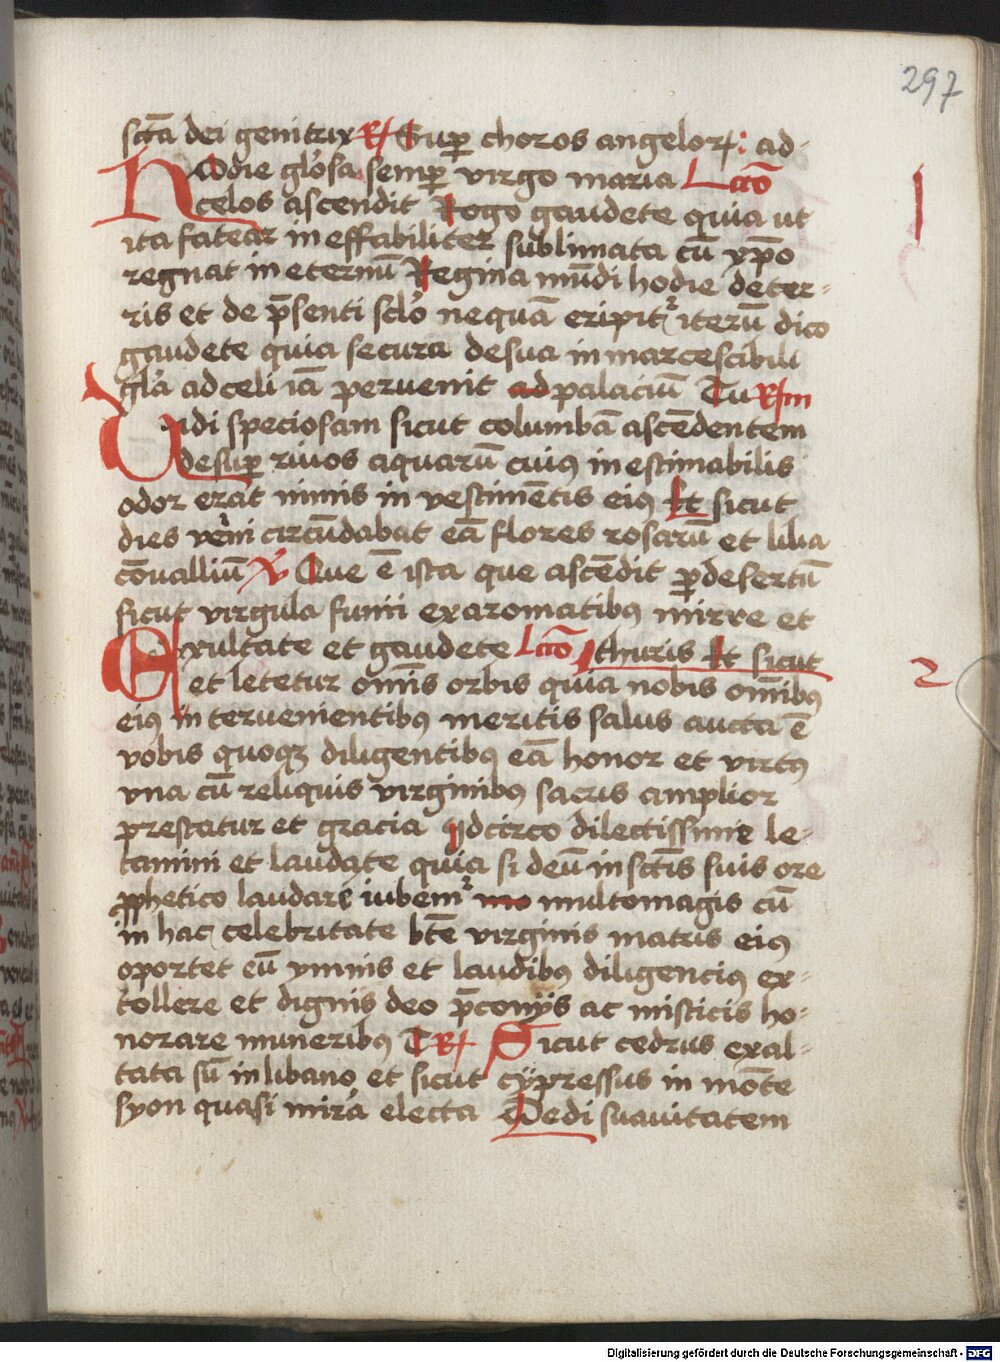 297
sctā dei genitrix R Sup choros angelorꝝ: ad-
Hodie glo͛sa semꝑ virgo maria Lcco
celos ascendit Rogo gaudete quia ut
ita fatear ineffabiliter sublimata cū xp̄o
regnat in eternū Regina mūdi hodie de ter-
ris et de p̄senti sclo͛ nequā eripit᷑ iterū dico
gaudete quia secura de sua inmarcescibili
gl͛a ad celi iā peruenit ad palaciū Tu Rm
Vidi speciosam sicut columbā ascēdentem
desuꝑ riuos aquarū cuiꝯ inestimabilis
odor erat nimis in vestimētis eiꝯ Et sicut
dies v͛ni circūdabat eā flores rosarū et lilia
cōuallium V Que ē ista que ascēdit ꝑ desertū
sicut virgula fumi ex aromatibꝯ mirre et
Exultate et gaudete Lcco thuris Et sicut
et letetur om̄is orbis quia nobis om̄ibꝯ
eiꝯ interuenientibꝯ meritis salus aucta ē
vobis quoqꝫ diligentibꝯ eā honor et virtꝯ
vna cū reliquis virginibꝯ sacris amplior
prestatur et gracia Idcirco dilectissime le-
tamini et laudate quia si deū in sctīs suis ore
ꝓphetico laudari iubem᷑ mo multomagis cū
in hac celebritate btē virginis matris eiꝯ
oportet eū ymnis et laudibꝯ diligenciꝯ ex-
tollere et dignis deo p̄conijs ac misticis ho-
norare muneribꝯ T R Sicut cedrus exal-
tata sū in libano et sicut cÿpressus in mōte
syon quasi mir͛a electa Dedi suauitatem
1
2
Digitalisierung gefördert durch die Deutsche Forschungsgemeinschaft - DFG